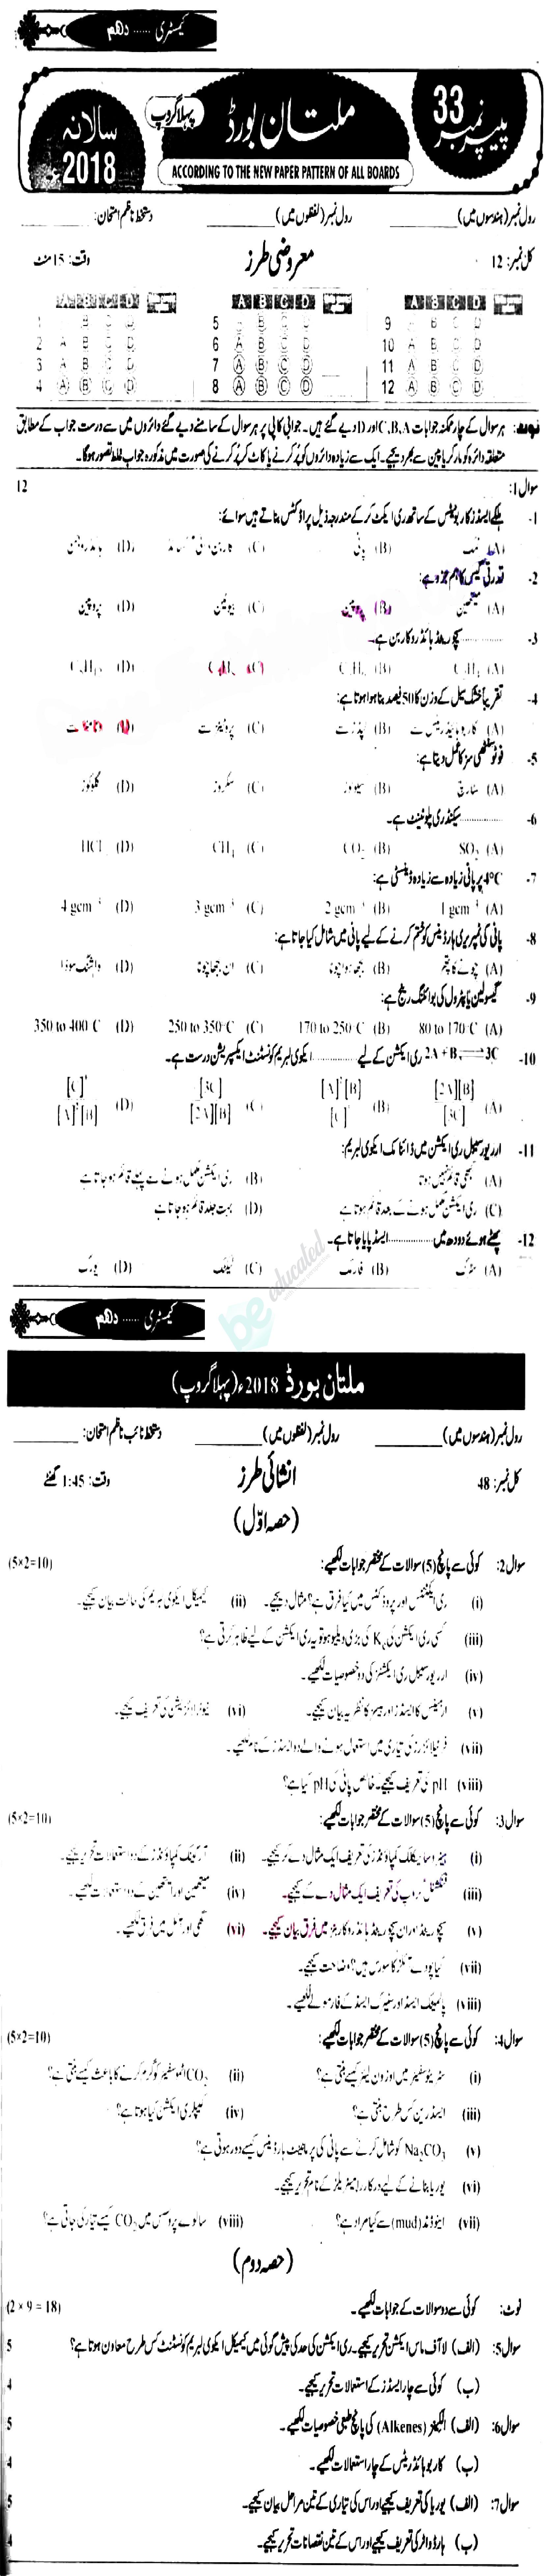 کیمسٹری ...... دہم
پیپر نمبر 33
ملتان بورڈ
پہلا گروپ
سالانہ 2018ء
ACCORDING TO THE NEW PAPER PATTERN OF ALL BOARDS
رول نمبر (ہندسوں میں) رول نمبر (لفظوں میں) دستخط ناظم امتحان:
کل نمبر: 12 معروضی طرز وقت: 15 منٹ
A B C D
A B C D
A B C D
1 B C D 5 B C D 9 B C D
2 A B C D 6 A B C D 10 A B C D
3 A B C D 7 A B C D 11 A B C D
4 A B C D 8 A B C D 12 A B C D
نوٹ: ہر سوال کے چار ممکنہ جوابات C,B,A اور D دیے گئے ہیں۔ جوابی کاپی پر ہر سوال کے سامنے دیے گئے دائروں میں سے درست جواب کے مطابق
متعلقہ دائرہ کو مارکر یا پین سے بھر دیجیے۔ ایک سے زیادہ دائروں کو پُر کرنے یا کاٹ کر پُر کرنے کی صورت میں مذکورہ جواب غلط تصور ہوگا۔
سوال 1: 12
1- ہلکے ایسڈز کاربونیٹس کے ساتھ ری ایکٹ کر کے مندرجہ ذیل پراڈکٹس بناتے ہیں سوائے:
(A) نمک (B) پانی (C) کاربن ڈائی آکسائیڈ (D) ہائڈروجن
2- قدرتی گیس کا اہم جزو ہے:
(A) میتھین (B) (C) بیوٹین (D) پروپین
3- ............ سیچوریٹڈ ہائڈروکاربن ہے۔
(A) (B) (C) (D)
4- تقریباً خشک سیل کے وزن کا 50 فیصد بنا ہوا ہوتا ہے:
(A) کاربوہائیڈریٹس سے (B) لپڈز سے (C) پروٹینز سے (D) وٹامنز سے
5- فوٹوسنتھی سز کا عمل دیتا ہے:
(A) سٹارچ (B) سیلولوز (C) سکروز (D) گلوکوز
6- ............ سیکنڈری پلوٹینٹ ہے۔
(A) SO₂ (B) CO₂ (C) CH₄ (D) HCl
7- 4°C پر پانی زیادہ سے زیادہ ڈینسٹی ہے:
(A) 1 gcm⁻³ (B) 2 gcm⁻³ (C) 3 gcm⁻³ (D) 4 gcm⁻³
8- پانی کی ٹمپریری ہارڈنیس کو ختم کرنے کے لیے پانی میں شامل کیا جاتا ہے:
(A) چونے کا پتھر (B) بجھا ہوا چونا (C) ان بجھا چونا (D) واشنگ سوڈا
9- گیسولین یا پٹرول کی بوائلنگ رینج ہے:
(A) 80 to 170°C (B) 170 to 250°C (C) 250 to 350°C (D) 350 to 400°C
10- 2A+B⇌3C ری ایکشن کے لیے ............ ایکوی لبریم کونسٹنٹ ایکسپریشن درست ہے۔
(A) [2A][B]/[3C] (B) [A]²[B]/[C]³ (C) [3C]/[2A][B] (D) [C]³/[A]²[B]
11- ارریورسیبل ری ایکشن میں ڈائنامک ایکوی لبریم:
(A) کبھی قائم نہیں ہوتا (B) ری ایکشن مکمل ہونے سے پہلے قائم ہو جاتا ہے
(C) ری ایکشن مکمل ہونے کے بعد قائم ہوتا ہے (D) بہت جلد قائم ہو جاتا ہے
12- پھٹے ہوئے دودھ میں ............ ایسڈ پایا جاتا ہے۔
(A) سٹرک (B) فارمک (C) لیکٹک (D) یورک
be educated
کیمسٹری ...... دہم
ملتان بورڈ 2018ء (پہلا گروپ)
رول نمبر (ہندسوں میں) رول نمبر (لفظوں میں) دستخط نائب ناظم امتحان:
کل نمبر: 48 انشائی طرز وقت: 1:45 گھنٹے
(حصہ اوّل)
سوال 2: کوئی سے پانچ (5) سوالات کے مختصر جوابات لکھیے: (5×2=10)
(i) ری ایکٹنٹس اور پروڈکٹس میں کیا فرق ہے؟ مثال دیجیے۔ (ii) کیمیکل ایکوی لبریم کی حالت بیان کیجیے۔
(iii) کسی ری ایکشن کی Kc کی بڑی ویلیو ہو تو یہ ری ایکشن کے لیے ظاہر کرتی ہے؟
(iv) ارریورسیبل ری ایکشنز کی دو خصوصیات لکھیے۔
(v) ارہینئس کا ایسڈز اور بیسز کا نظریہ بیان کیجیے۔ (vi) نیوٹرلائزیشن کی تعریف کیجیے۔
(vii) فرٹیلائزرز کی تیاری میں استعمال ہونے والے دو ایسڈز کے نام لکھیے۔
(viii) pH کی تعریف کیجیے۔ خالص پانی کی pH کیا ہے؟
سوال 3: کوئی سے پانچ (5) سوالات کے مختصر جوابات لکھیے: (5×2=10)
(i) ہیٹروسائیکلک کمپاؤنڈز کی تعریف ایک مثال دے کر کیجیے۔ (ii) آرگینک کمپاؤنڈز کے دو استعمالات تحریر کیجیے۔
(iii) فنکشنل گروپ کی تعریف ایک مثال دے کے کیجیے۔ (iv) میتھین اور ایتھین کے دو استعمالات لکھیے۔
(v) سیچوریٹڈ اور ان سیچوریٹڈ ہائڈروکاربنز میں فرق بیان کیجیے۔ (vi) گھی اور آئل میں فرق لکھیے۔
(vii) کیا پودے آئلز کا سورس ہیں؟ وضاحت کیجیے۔
(viii) پالمیٹک ایسڈ اور سٹیرک ایسڈ کے فارمولے لکھیے۔
سوال 4: کوئی سے پانچ (5) سوالات کے مختصر جوابات لکھیے: (5×2=10)
(i) سٹریٹوسفیئر میں اوزون لیئر کیسے بنتی ہے؟ (ii) CO₂ اٹموسفیئر کو گرم کرنے کا باعث کیسے بنتی ہے؟
(iii) ایسڈ رین کس طرح بنتی ہے؟ (iv) کیپلری ایکشن کیا ہوتا ہے؟
(v) Na₂CO₃ کو شامل کرنے سے پانی کی پرمانینٹ ہارڈنیس کیسے دور ہوتی ہے؟
(vi) یوریا بنانے کے لیے درکار را میٹریلز کے نام تحریر کیجیے۔
(vii) اینوڈ مڈ (mud) سے کیا مراد ہے؟ (viii) سالوے پروسس میں CO₂ کیسے تیار کی جاتی ہے؟
(حصہ دوم)
نوٹ: کوئی سے دو سوالات کے جوابات لکھیے۔ (2 × 9 = 18)
سوال 5: (الف) لاء آف ماس ایکشن تحریر کیجیے۔ ری ایکشن کی حد کی پیش گوئی میں کیمیکل ایکوی لبریم کونسٹنٹ کس طرح معاون ہوتا ہے؟ 5
(ب) کوئی سے چار ایسڈز کے استعمالات تحریر کیجیے۔ 4
سوال 6: (الف) الکینز (Alkenes) کی پانچ طبعی خصوصیات لکھیے۔ 5
(ب) کاربوہائڈریٹس کے چار استعمالات لکھیے۔ 4
سوال 7: (الف) یوریا کی تعریف کیجیے اور اس کی تیاری کے تین مراحل بیان کیجیے۔ 5
(ب) ہارڈ واٹر کی تعریف کیجیے اور اس کے تین نقصانات تحریر کیجیے۔ 4